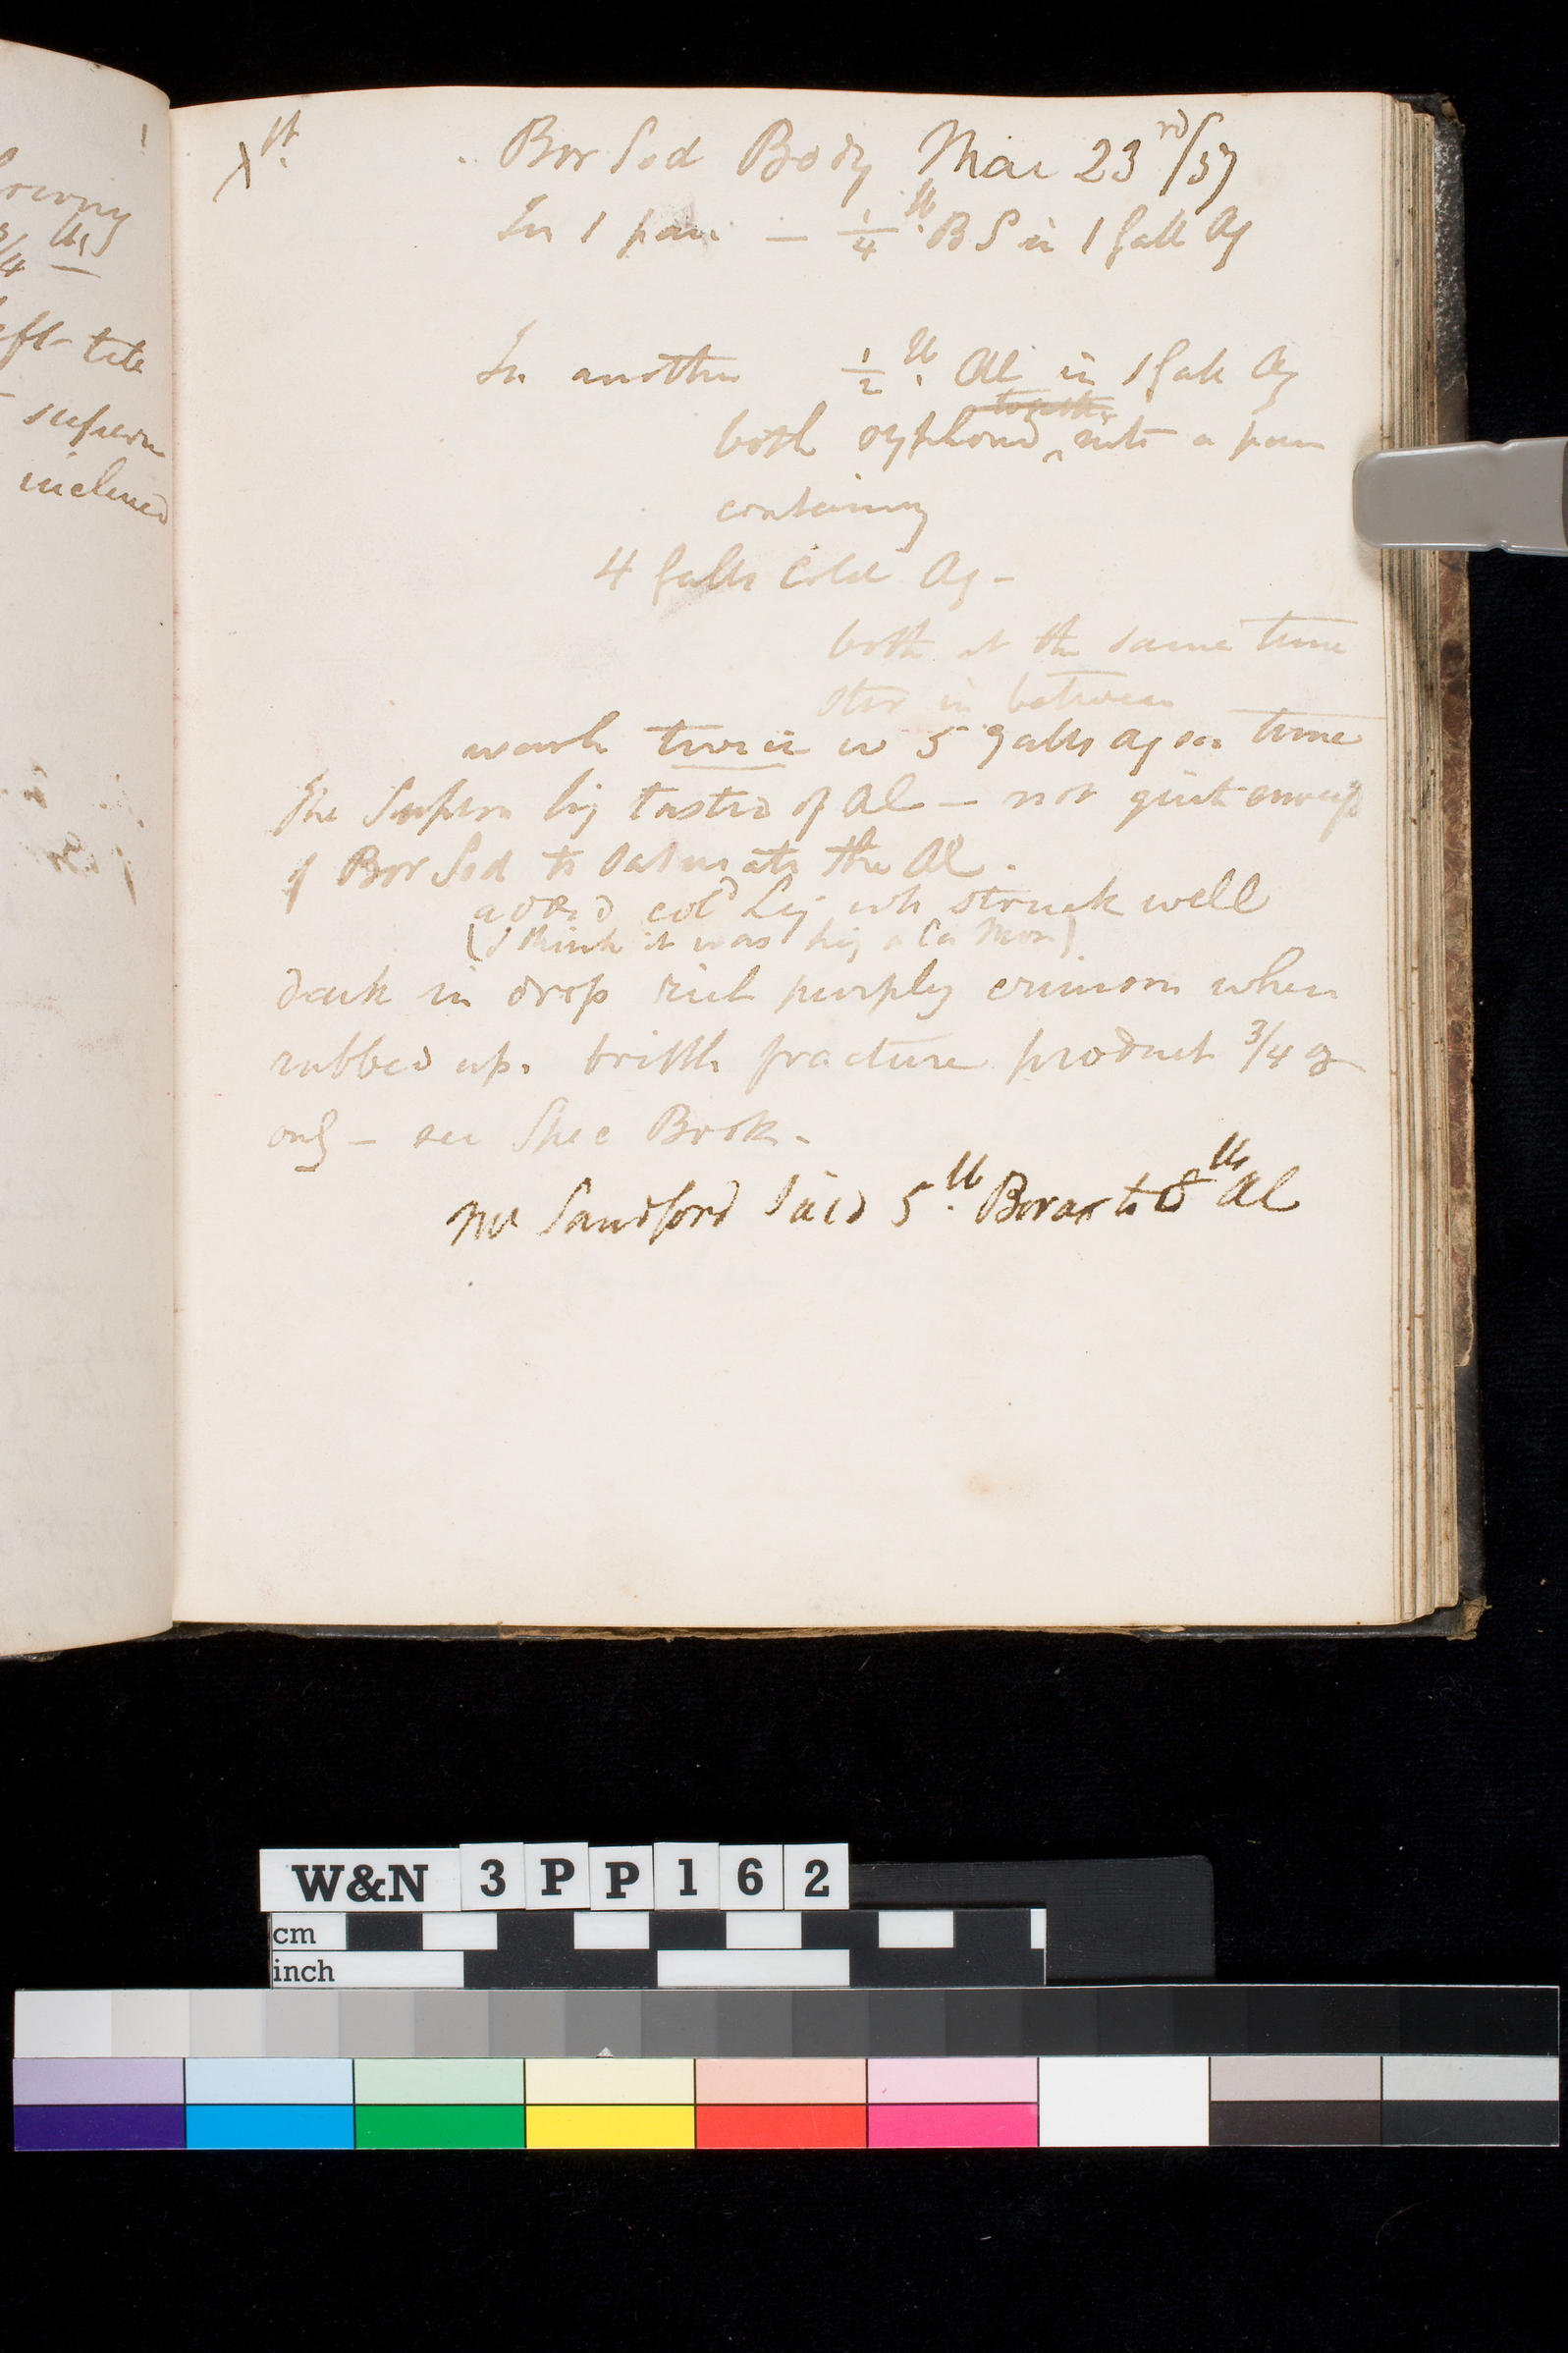 rowny
3/4 lbs
eft tite
supern
inclined
1st. Bor Sod Body Mar 23rd/57
In 1 pan — 1/4 lb. B S in 1 gall Aq
In another 1/2 lb. Al in 1 gall Aq
together
both syphond ^ into a pan
containing
4 galls Cold Aq -
both at the same time
stir in between
wash twice in 5 galls aq ea time
The Supern liq tasted of Al — not quite enough
of Bor Sod to saturate the Al.
added cold Liq wh struck well
(I think it was liq a la Mon)
dark in drop rich purply crimson when
rubbed up. brittle fracture product 3/4 oz
only — see Spec Book.
Mr Sandford said 5 lb. Borax to 8 lb Al
W&N 3PP162
cm
inch